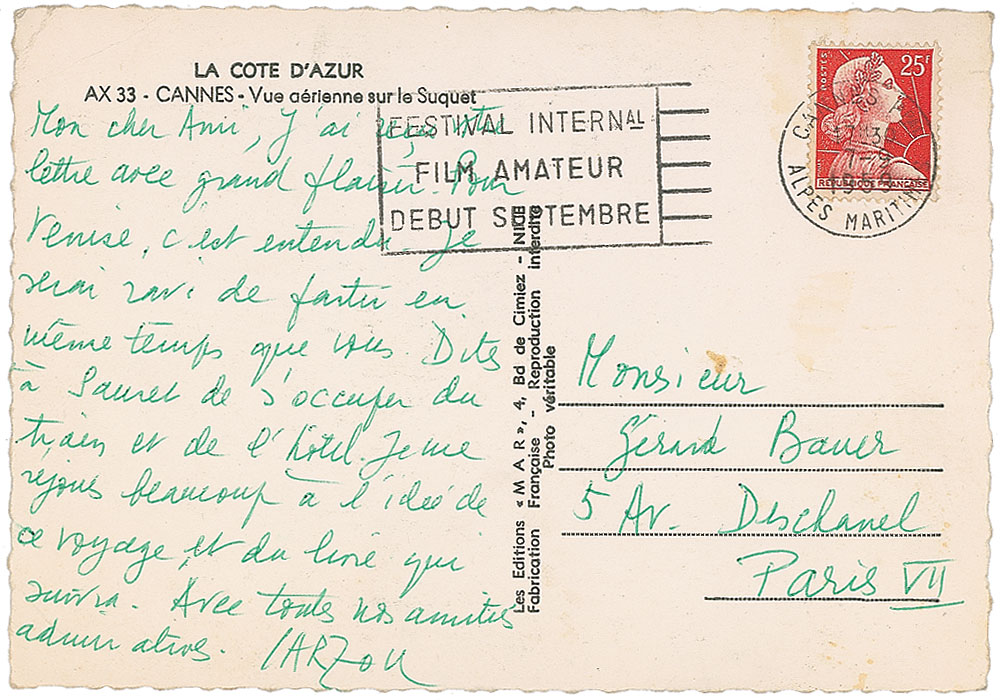 LA COTE D'AZUR
AX 33 - CANNES - Vue aérienne sur le Suquet
Mon cher Ami, J'ai reçu votre
lettre avec grand plaisir. Pour
Venise, c'est entendu. Je
serai ravi de partir en
même temps que vous. Dites
à Sauret de s'occuper du
train et de l'hôtel. Je me
réjouis beaucoup à l'idée de
ce voyage, et du livre qui
suivra. Avec toutes nos amitiés
admiratives. CARZOU
FESTIVAL INTERNAL
FILM AMATEUR
DEBUT SEPTEMBRE
POSTES
25F
REPUBLIQUE FRANÇAISE
ALPES MARITIMES
Les Editions «MAR», 4, Bd de Cimiez - NICE
Fabrication Française - Reproduction interdite
Photo véritable
Monsieur
Gérard Bauer
5 Av. Deschanel
Paris VII